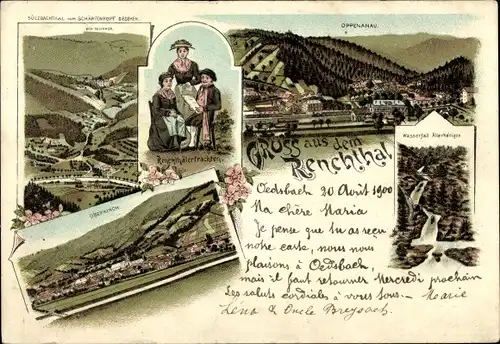 SULZBACHTHAL VOM SCHÄRTENKOPF GESEHEN.
OPPENANAU.
Renchthälertrachten.
Gruss aus dem
Renchthal.
Wasserfall Allerheiligen
OBERKIRCH
Oedsbach 20 Août 1900
Ma chère Maria
Je pense que tu as reçu
notre carte, nous nous
plaisons à Oedsbach,
mais il faut retourner Mercredi prochain
Les saluts cordiales à vous tous. Marie
Léna & Oncle Breysach.